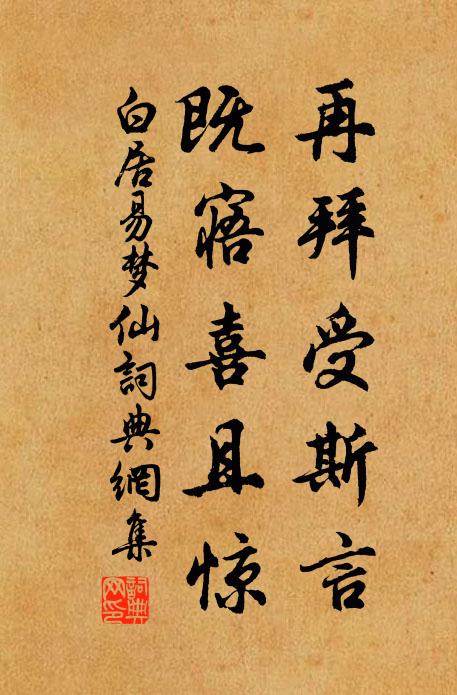 再拜受斯言
既寤喜且惊
白居易梦仙詞典網集
詞典网印